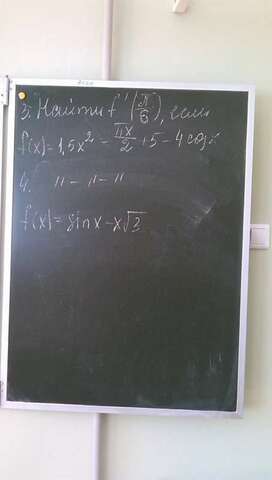 3. Найти f'(π/6), если
f(x)=1,5x² - πx/2 +5 - 4 cos x
4. " - " - "
f(x)= sin x - x√3